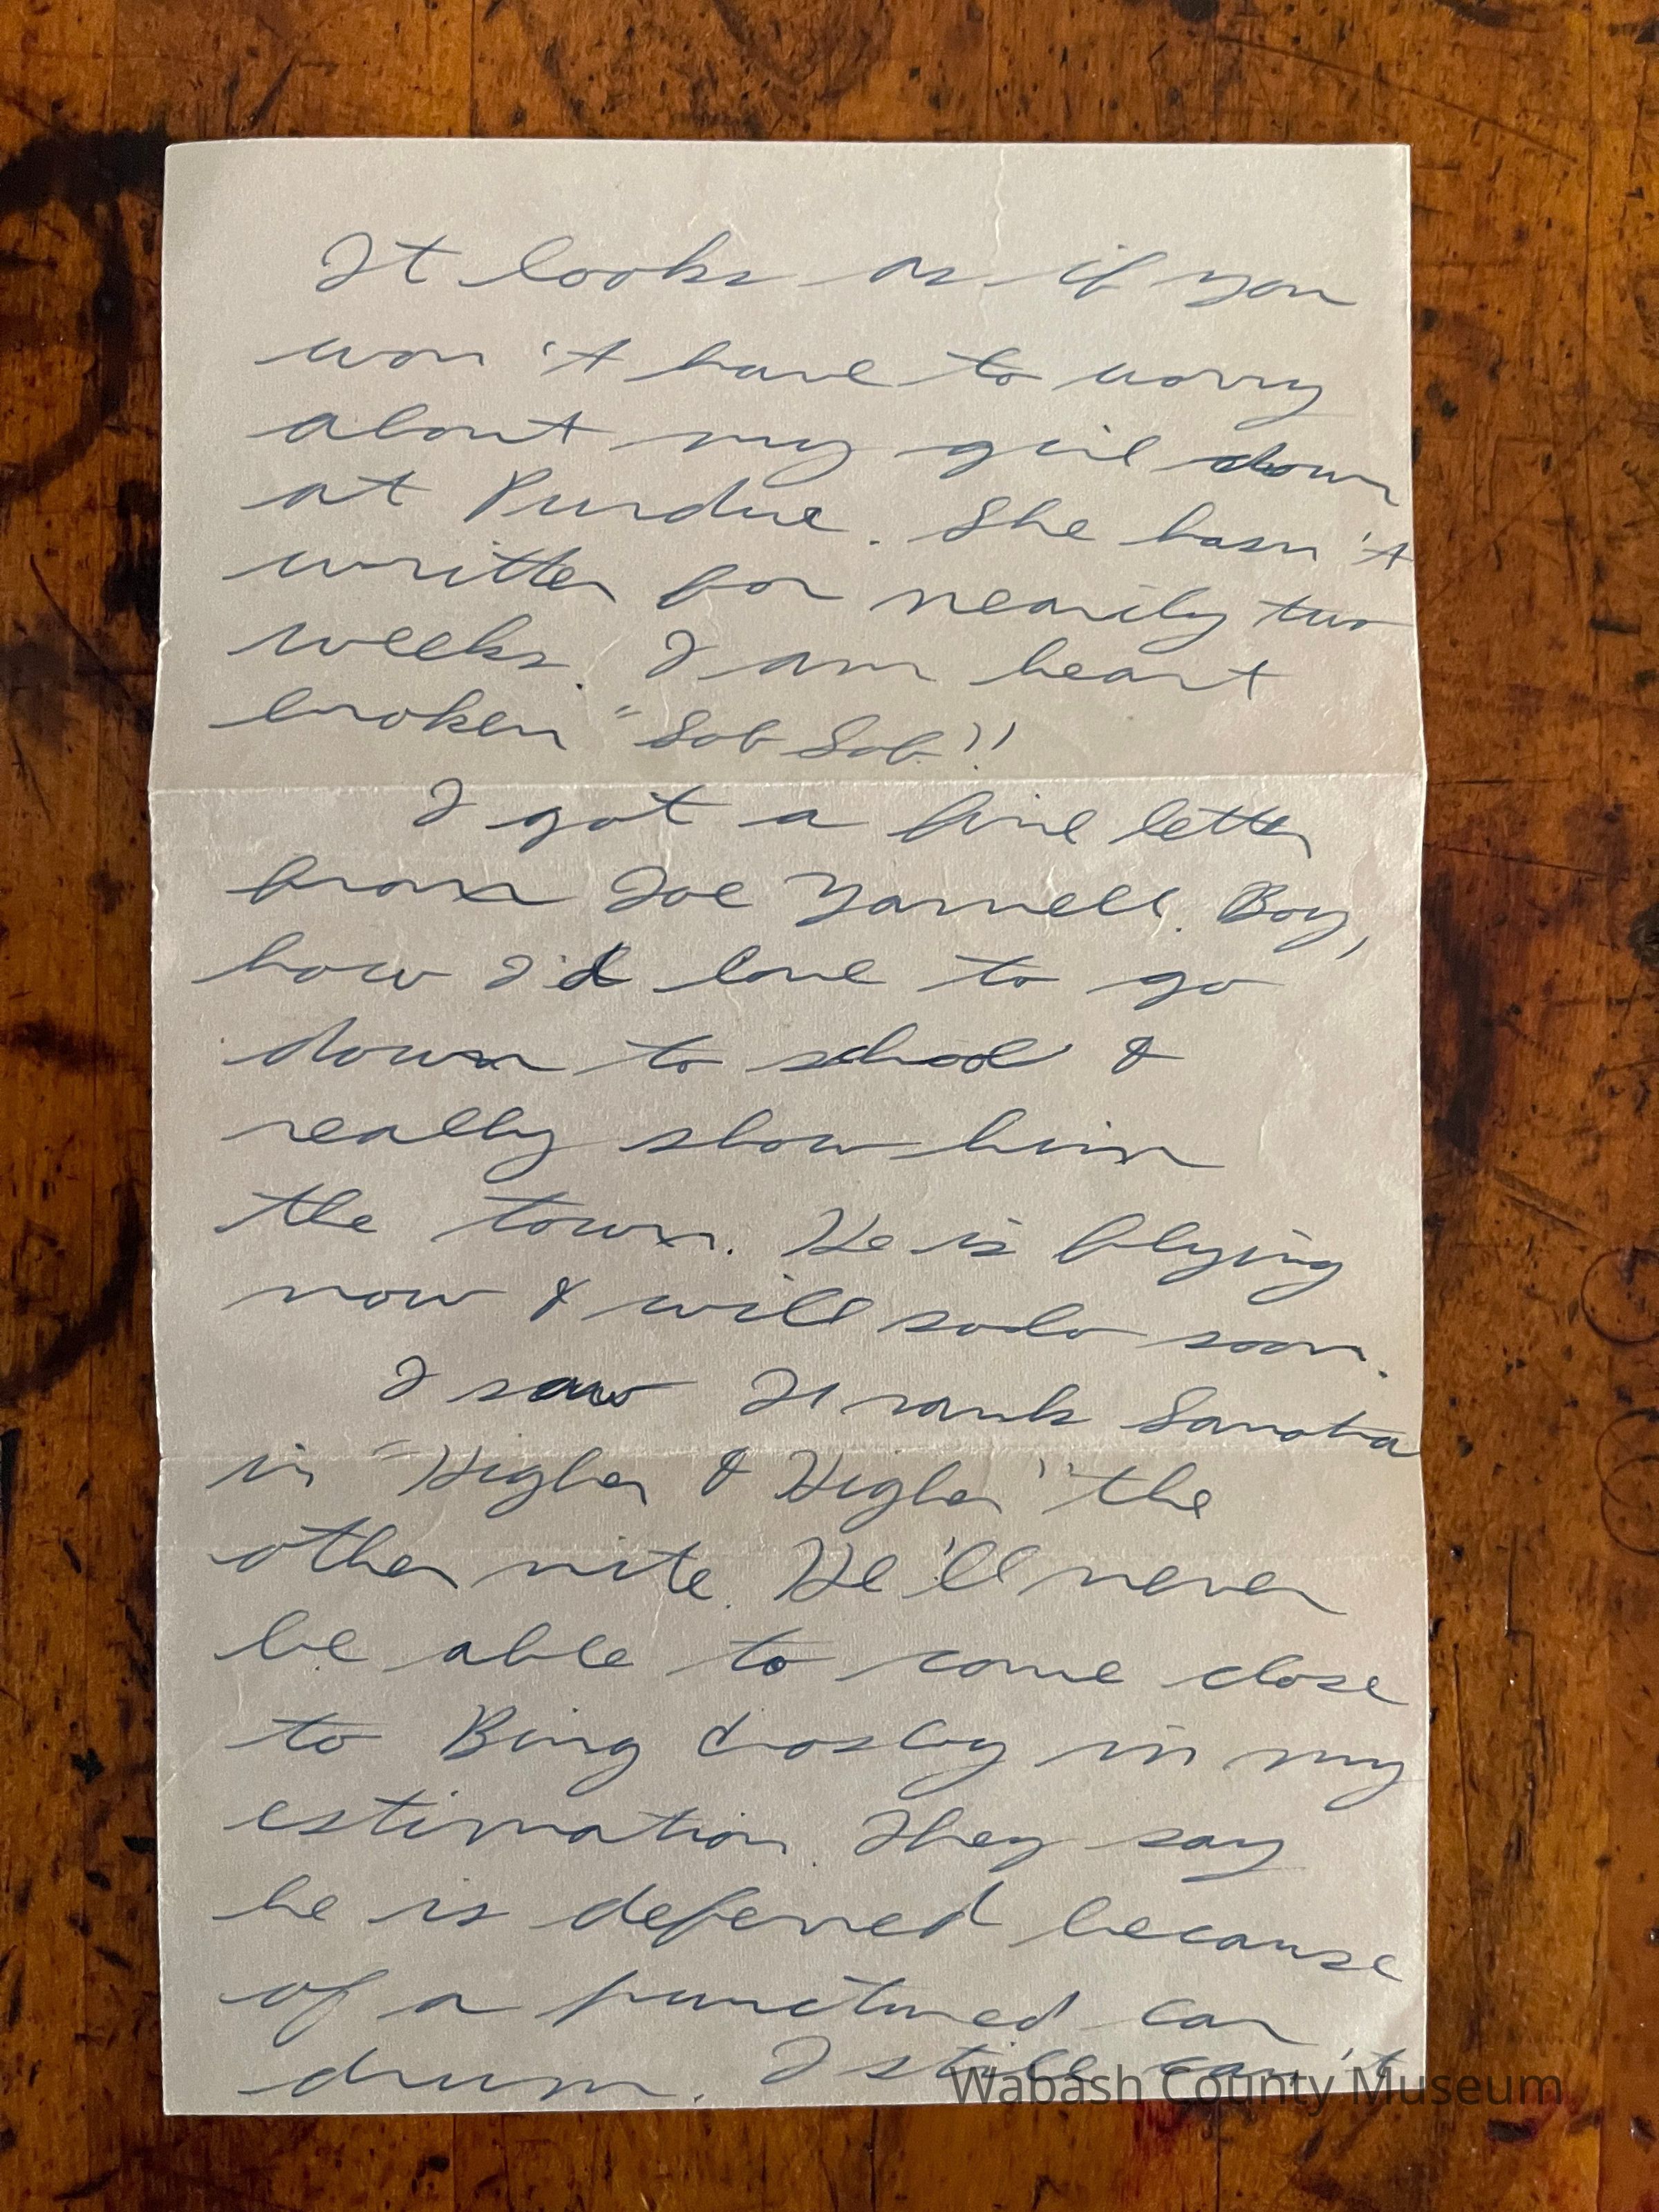 It looks as if you
won't have to worry
about my girl down
at Purdue. She hasn't
written for nearily two
weeks. I am heart
broken "Sob Sob"!
I got a fine letter
from Joe Yarnell. Boy,
how I'd love to go
down to school &
really show him
the town. He is flying
now & will solo soon.
I saw Frank Sanatra
in "Higher & Higher" the
other nite. He'll never
be able to come close
to Bing Crosby in my
estimation. They say
he is deferred because
of a punctured ear
drum. I still can't
Wabash County Museum